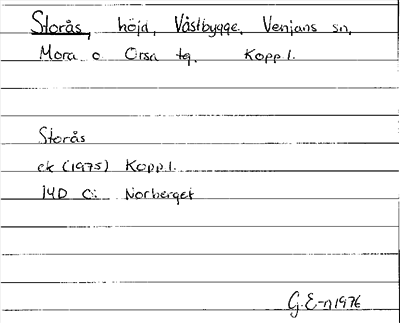 Storås, höjd, Västbygge, Venjans sn,
Mora o Orsa tg, Kopp l.
Storås
ek (1975) Kopp l.
14D C: Norberget
G.E-n 1976